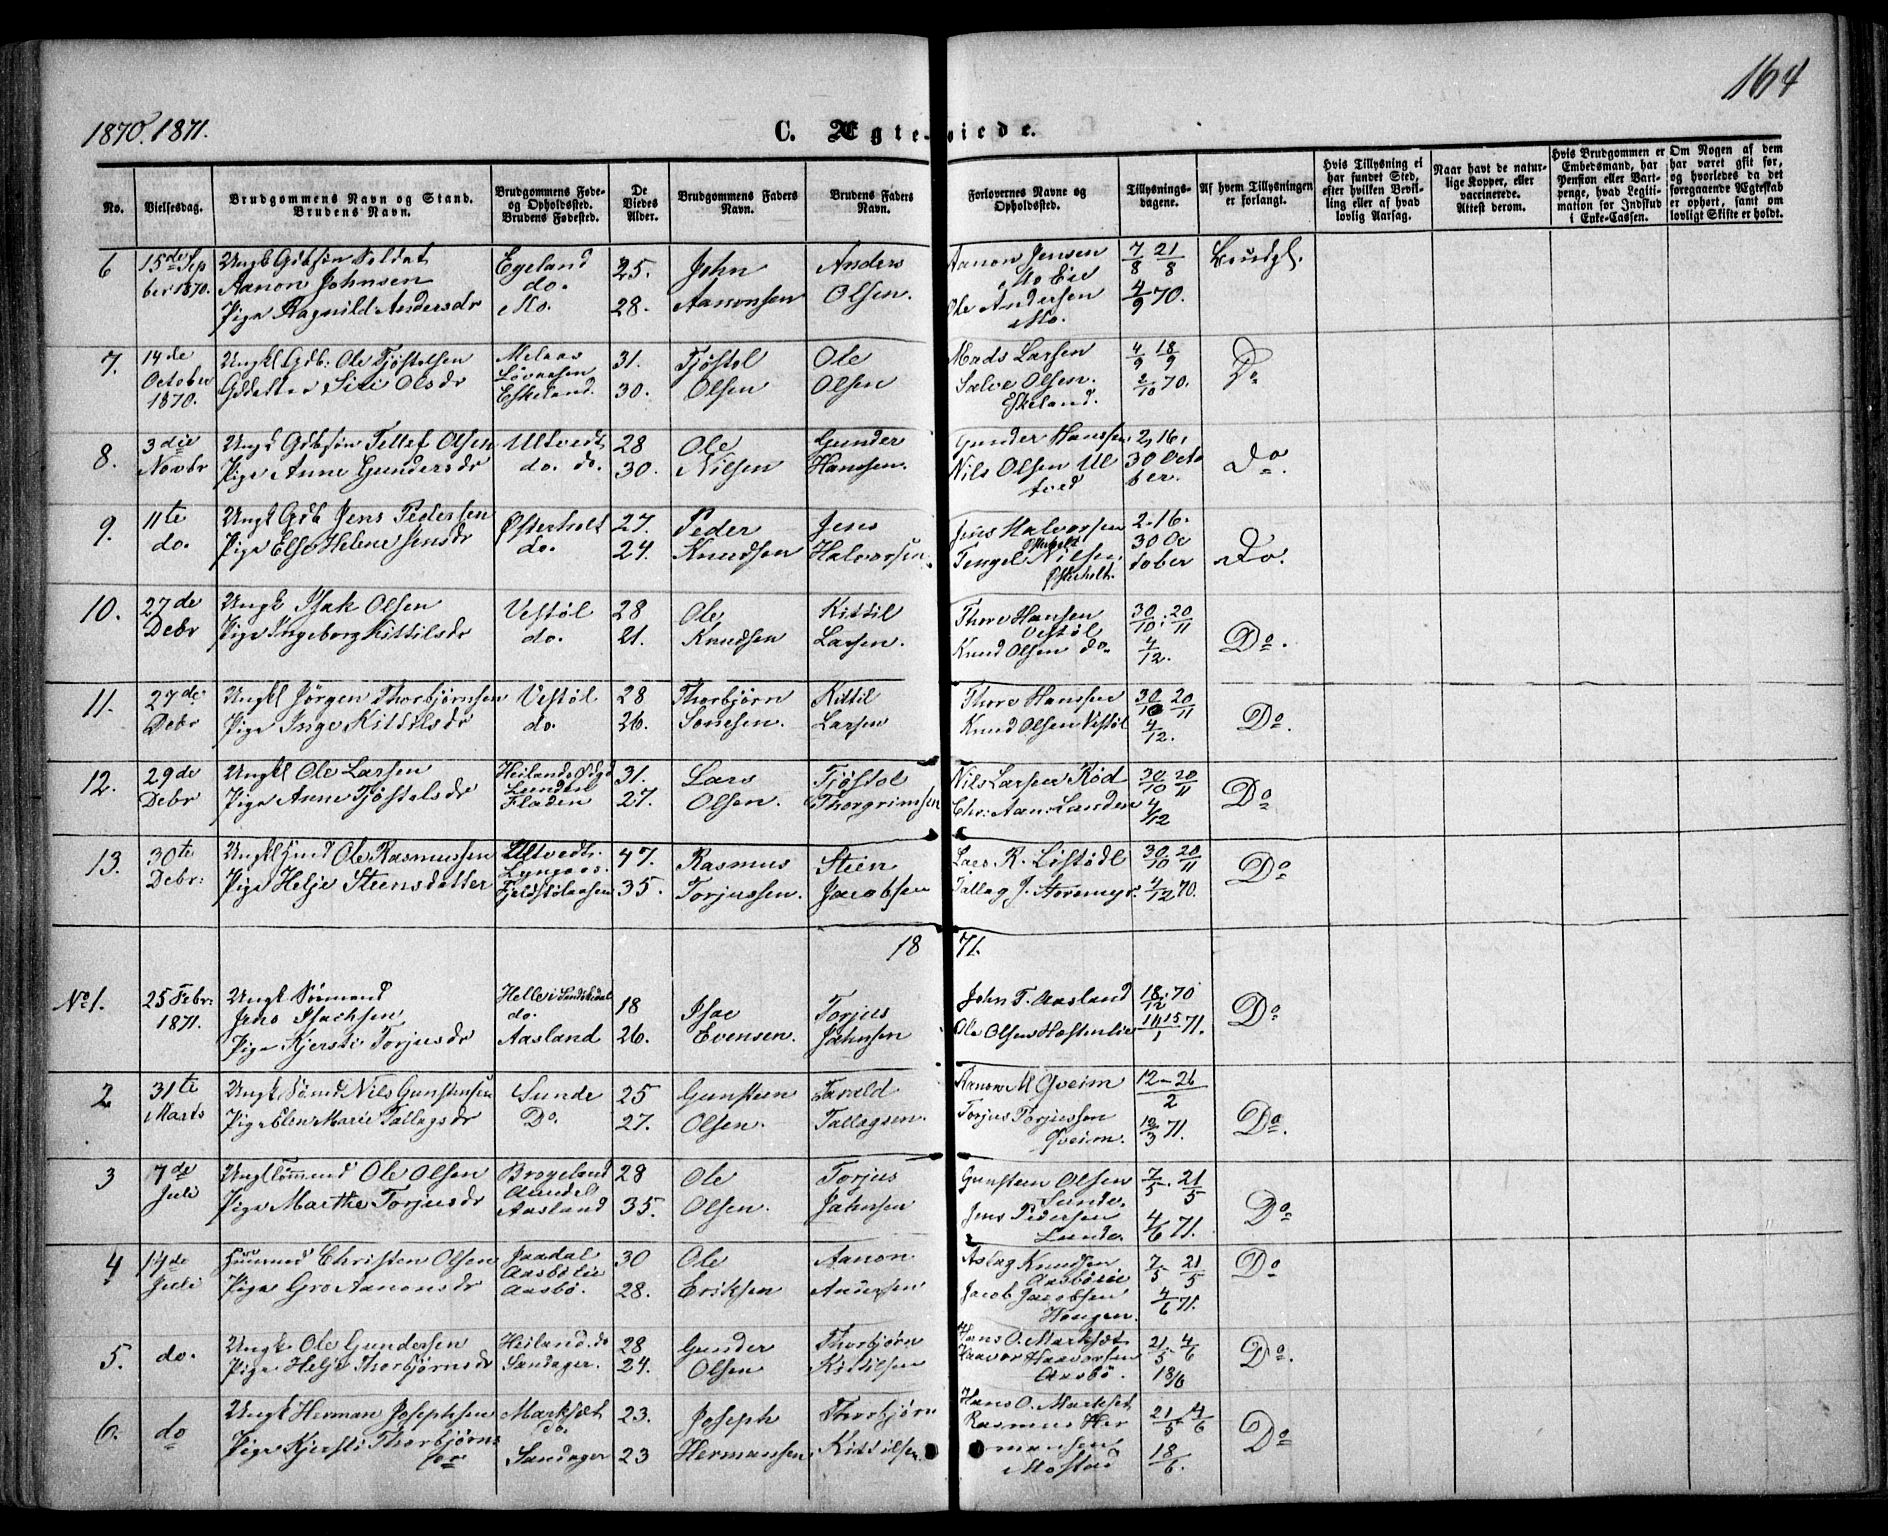 164
1870. 1871.
C. Ægteviede.
No.
Vielsesdag.
Brudgommens Navn og Stand.
Brudens Navn.
Brudgommens Føde-
og Opholdsted.
Brudens Fødested.
De
Viedes
Alder.
Brudgommens Faders
Navn.
Brudens Faders
Navn.
Forlovernes Navne og
Opholdsted.
Tillysnings-
dagene.
Af hvem Tillysningen
er forlangt.
Hvis Tillysning ei
har fundet Sted,
efter hvilken Bevil-
ling eller af hvad
lovlig Aarsag.
Naar havt de natur-
lige Kopper, eller
vaccinerede.
Attest derom.
Hvis Brudgommen er
Embedsmand, har
Pension eller Vart-
penge, hvad Legiti-
mation for Indskud
i Enke-Cassen.
Om Nogen af dem
har været gift før,
og hvorledes da det
foregaaende Ægteskab
er ophørt, samt om
lovligt Skifte er holdt.
6 15de Sep Ungk Gdbsøn Soldat Egeland 25. John Anders Aanon Jensen 7/8 21/8 Brudg.
ber 1870. Aanon Johnsen do. Mo Eie
Pige Ragnild Andersdr Mo. 28. Aanonsen Olsen. Ole Andersen 4/9 70.
Mo.
7. 14de Ungkl Gdb: Ole Tjøstelsen Melaas 31. Tjøstol Ole Mads Larsen 4/9 18/9 Do
October Gddatter Siri Olsdr Løvaasen Salve Olsen. 2/10 70.
1870. Eskeland. 30. Olsen Olsen Eskeland.
8. 3die Ungk Gdbsøn Tellef Olsen Ultvedt 28 Ole Gunder Gunder Hanssen 2, 16,
Novbr Pige Anne Gundersdr do. do. 30. Nilsen Hanssen. Nils Olsen Ul 30 Octo Do
tved ber.
9. 11te Ungk Gdb Jens Pedersen Østerholt 27. Peder Jens Jens Halvorsen 2. 16.
do. Pige Else Helene Jensdr do. 24. Knudsen Halvorsen. Østerholt 30 Oc Do.
Tengel Nilsen tober
Østerholt.
10. 27de Ungk Isak Olsen Vestøl 28 Ole Kittil Thore Hansen 30/10. 20/11
Debr Pige Ingeborg Kittilsdr do. 21. Knudsen Larsen. Vestøl
Knud Olsen do. 4/12. Do.
11. 27de Ungkl Jørgen Thorbjørnsen Vestøl 28 Thorbjørn Kittil Thore Hansen 30/10 20/11
Debr Pige Inge Kittilsdr do. 26. Larsen Knud Olsen Vestøl 4/12. Do
12. 29de Ungkl Ole Larsen 31. Lars Tjøstol Nils Larsen Rød 30/10 20/11
Debr Pige Anne Tjøstolsdr Fladen 27. Olsen. Thorgrimsen Chr: Aan: Landen 4/12 Do
13. 30te Ungkl Ole Rasmussen Ultvedt. 47. Rasmus Steen Lars R. Listødl 30/10 20/11 Do
Debr: Pige Helje Steensdatter Lyngaas. 35. Torjussen. Jacobsen Tallag J. Storemyr. 4/12 70.
Fjeldstølaasen
1871.
No 1. 25 Febr: Ungk Sømand Helle i Sandekedal 18 Isac Torjus John T. Aasland 18/12. 70
1871. Jens Isachsen do. Do
Pige Kjersti Torjusdr Aasland 26. Evensen. Jahnsen Ole Olsen Hestenlie 1 15/1 71.
2 31te Ungk Sømd Nils Gunstensen Sunde 25 Gunsteen Tarald Aanon M Qveim 12-26/2
Marts Pige Elen Marie Tallagsdr Do. 27. Olsen. Tallagsen. Torjus Torjussen 12/3 71. Do.
Qveim.
3 7de Ole Olsen 28 Ole Torjus Gunsteen Olsen 7/5. 21/5
Juli Pige Marthe Torjusdr Aasland 35. Olsen. Jahnsen Sunde. Do
Jens Pedersen 4/6 71.
4 14de Christen Olsen Jaadal 30 Ole Aanon Aslag Knudsen 7/5 21/5 Do
Juli Pige Gro Aanonsdr Aasbø. 28. Eriksen Jacob Jacobsen 4/6 71.
Hougen.
5. do. Ungk. Ole Gundersen Heiland. do 28 Gunder Thorbjørn Hans O. Marksæt 21/5 4/6
Pige Helje Thorbjørnsdr Sandager. 24. Olsen Kittilsen Haavor Haavorsen Do.
Aasbø. 18/6
6. do Ungk Herman Josephsen Marksæt 23. Joseph Thorbjørn Hans O. Marksæt
Pige Kjersti Thorbjørns do. Rasmus Her 21/5 4/6 Do
dr Sandager 23 Hermansen Kittilsen mansen 18/6.
Mostad